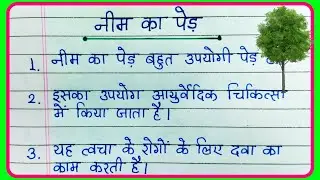 नीम का पेड़
1. नीम का पेड़ बहुत उपयोगी पेड़
2. इसका उपयोग आयुर्वेदिक चिकित्सा
में किया जाता है।
3. यह त्वचा के रोगों के लिए दवा का
काम करती है।